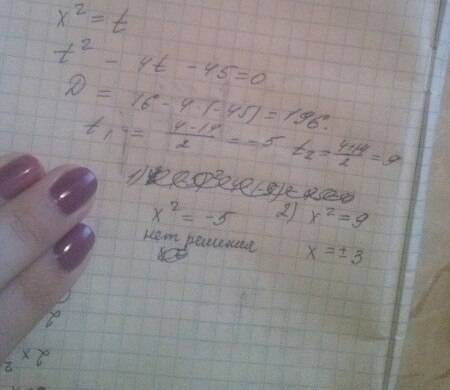 x² = t
t² - 4t - 45 = 0
D = 16 - 4·(-45) = 196.
t₁ = (4-14)/2 = -5 t₂ = (4+14)/2 = 9
1)
x² = -5 2) x² = 9
нет решения x = ±3